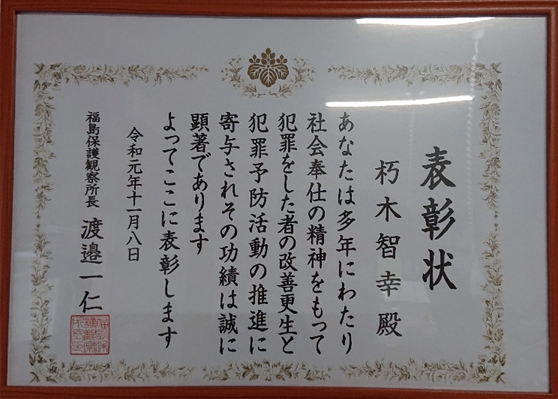 表彰状
朽木智幸 殿
あなたは多年にわたり
社会奉仕の精神をもって
犯罪をした者の改善更生と
犯罪予防活動の推進に
寄与されその功績は誠に
顕著であります
よってここに表彰します
令和元年十一月八日
福島保護観察所長 渡邉一仁